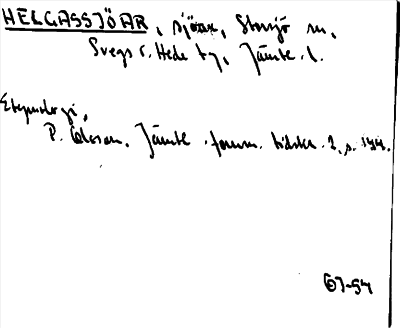 HELGASSJÖAR, sjöar, Storsjö sn,
Svegs o. Hede tg, Jämtl. l.
Etymologi,
P. Olsson, Jämtl. fornm. tidskr. 2, s. 194.